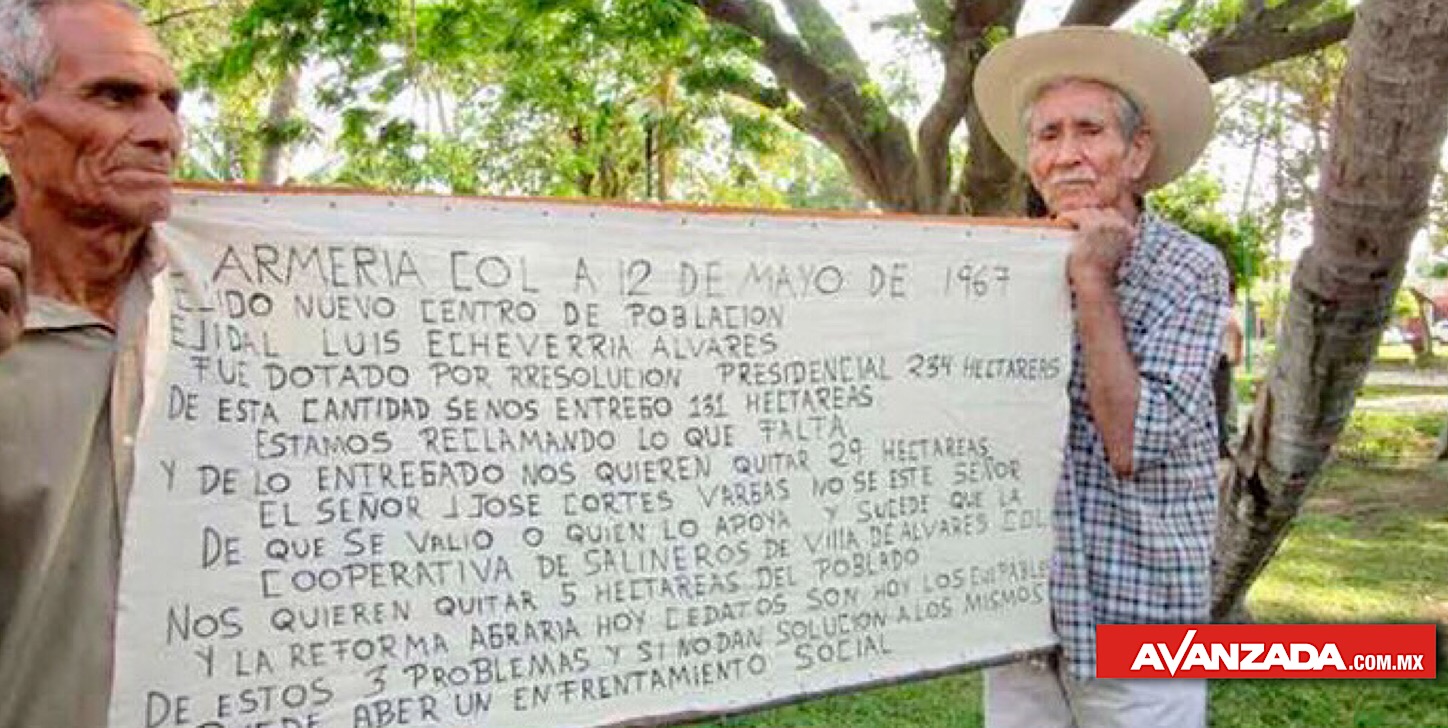 ARMERIA COL A 12 DE MAYO DE 1967
EJIDO NUEVO CENTRO DE POBLACION
EJIDAL LUIS ECHEVERRIA ALVARES
FUE DOTADO POR RRESOLUCION PRESIDENCIAL 234 HECTAREAS
DE ESTA CANTIDAD SE NOS ENTREGO 131 HECTAREAS
ESTAMOS RECLAMANDO LO QUE FALTA
Y DE LO ENTREGADO NOS QUIEREN QUITAR 29 HECTAREAS
EL SEÑOR J JOSE CORTES VARGAS NO SE ESTE SEÑOR
DE QUE SE VALIO O QUIEN LO APOYA Y SUCEDE QUE LA
COOPERATIVA DE SALINEROS DE VILLA DE ALVARES COL
NOS QUIEREN QUITAR 5 HECTAREAS DEL POBLADO
Y LA REFORMA AGRARIA HOY CEDATOS SON HOY LOS CULPABLES
DE ESTOS 3 PROBLEMAS Y SI NO DAN SOLUCION A LOS MISMOS
PUEDE ABER UN ENFRENTAMIENTO SOCIAL
AVANZADA.COM.MX